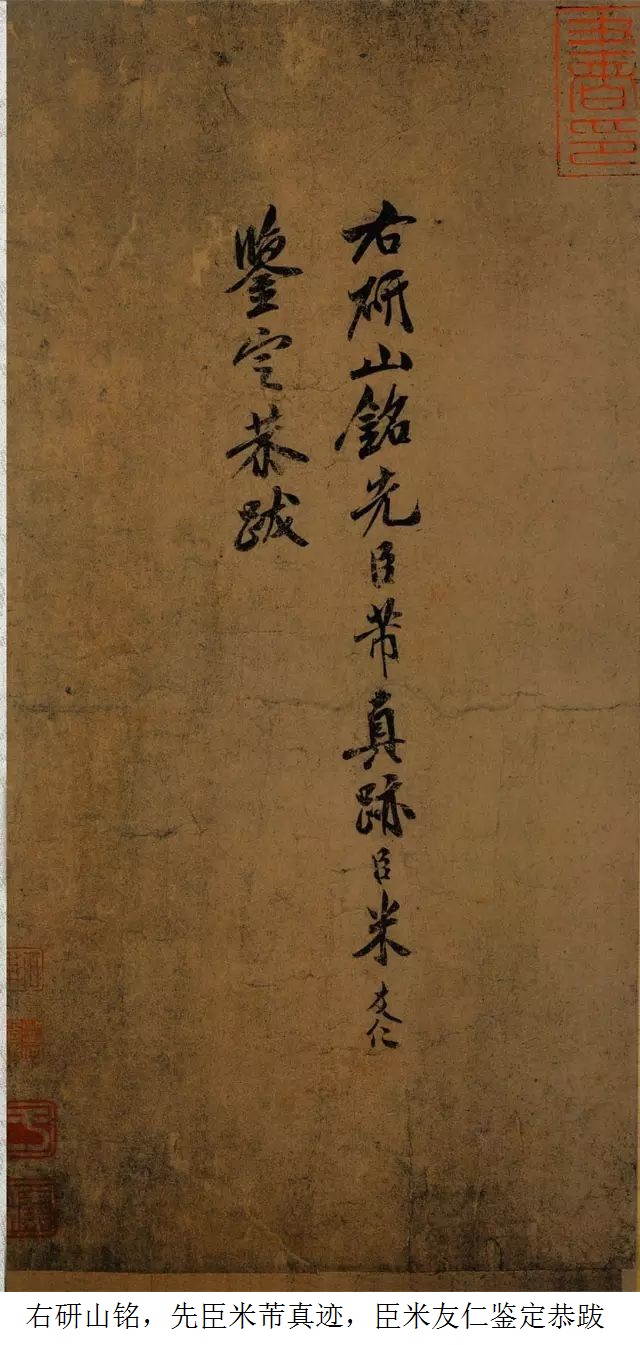 右研山銘先臣芾真跡臣米友仁
鑒定恭跋
右研山铭，先臣米芾真迹，臣米友仁鉴定恭跋